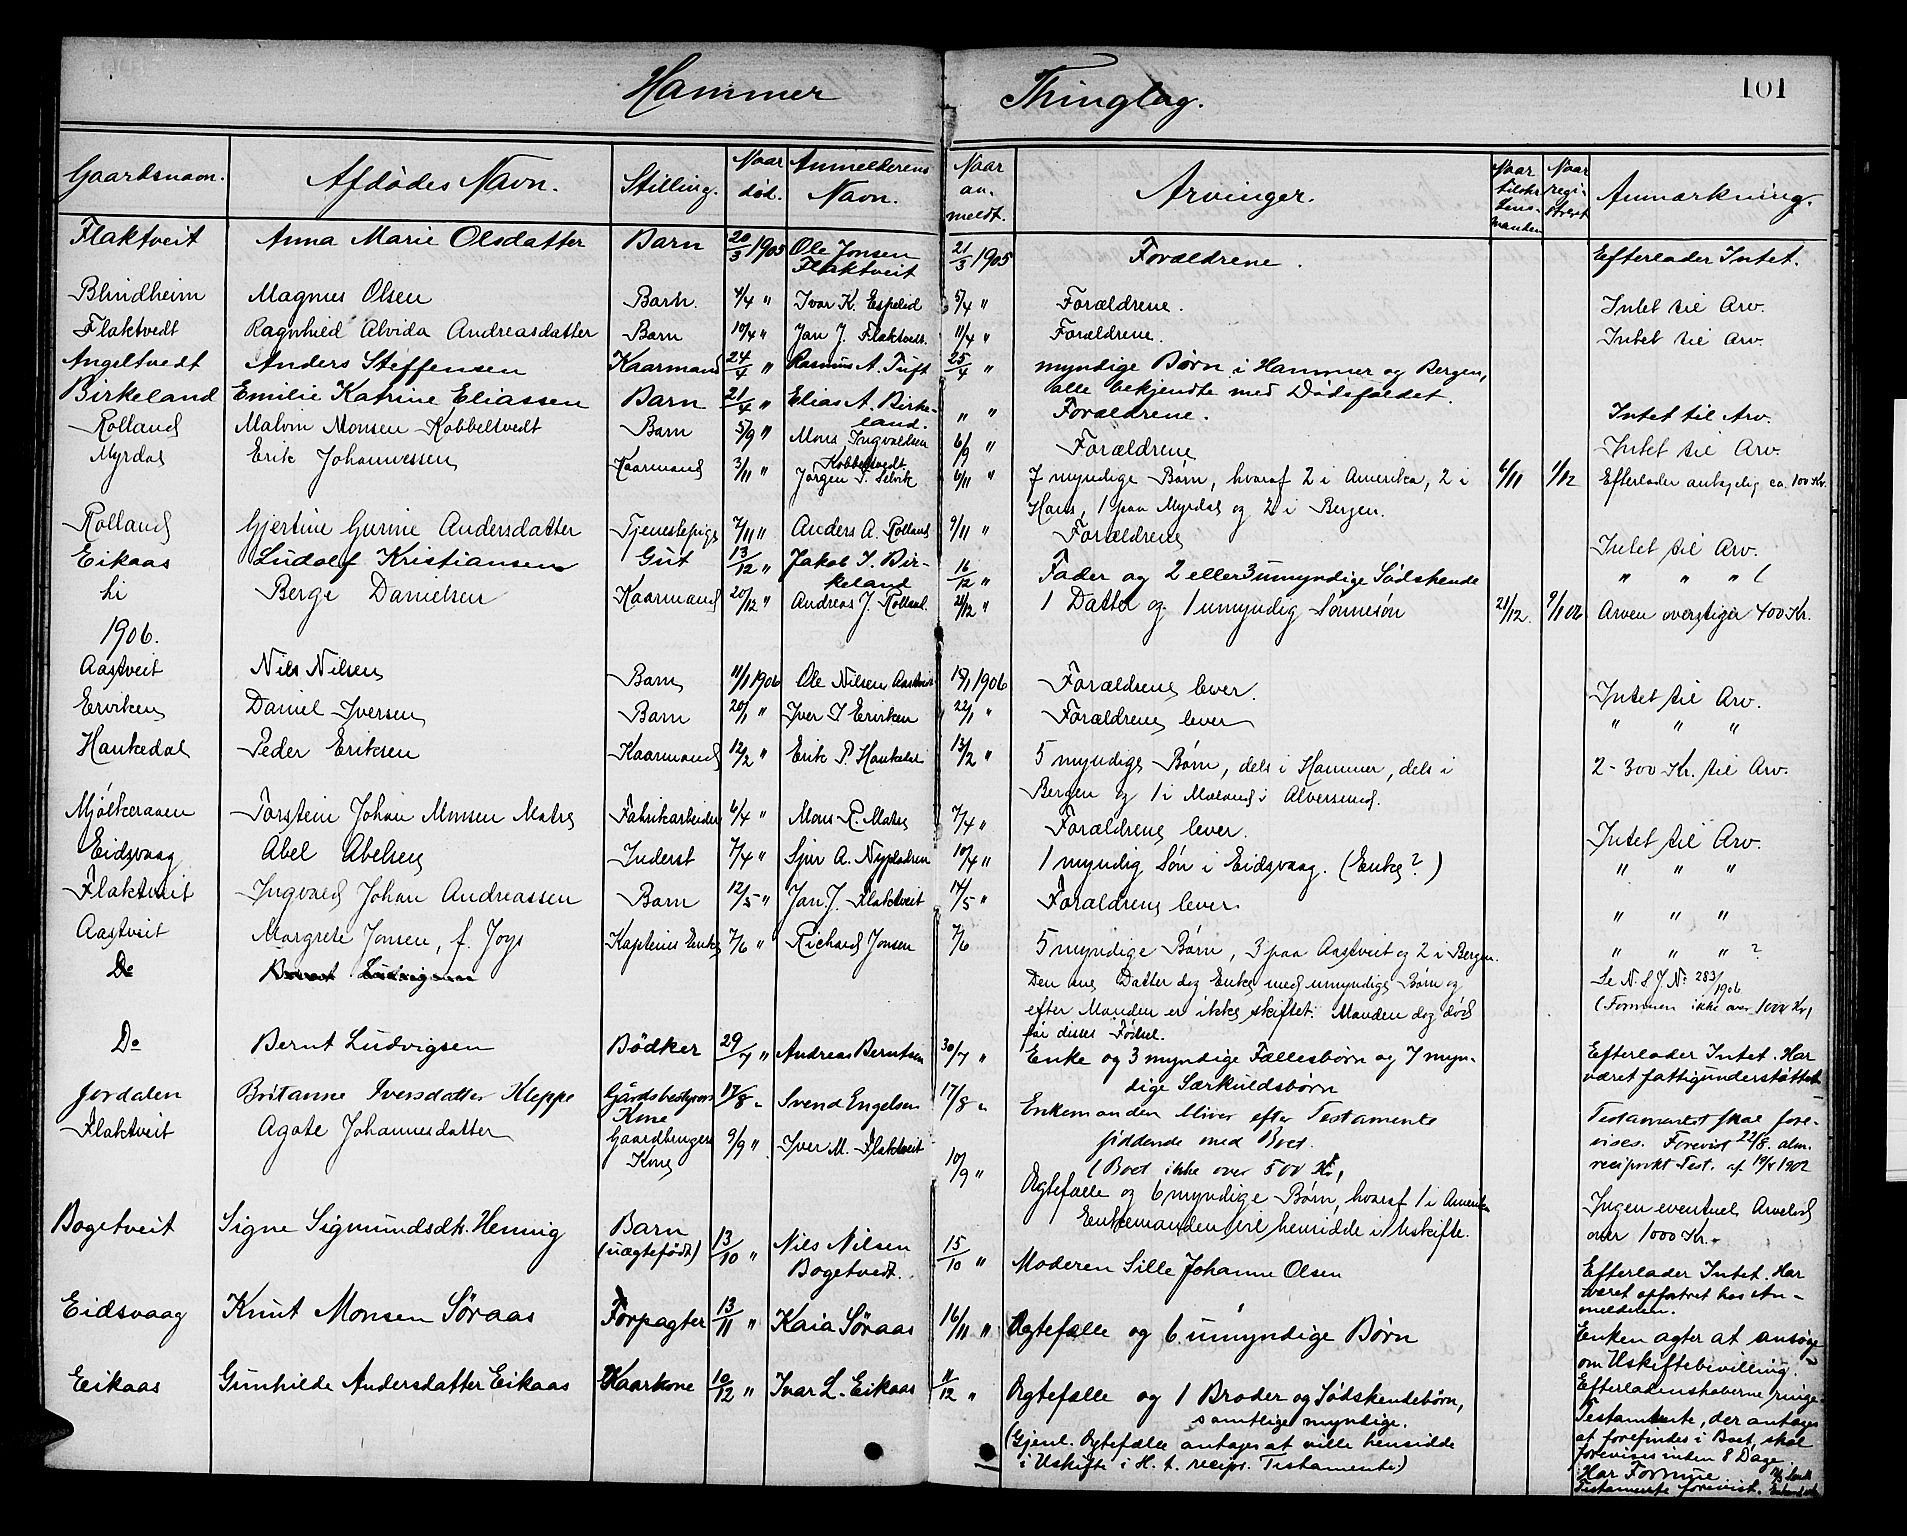 Hammer Thinglag. 101
Gaardsnavn. Afdødes Navn. Stilling. Naar død. Anmelderens Navn. Naar anmeldt. Arvinger. Naar tilskr. Lensmanden Naar registreret Anmærkning.
Flaktveit Anna Marie Olsdatter Barn 20/3 1905 Ole Jonsen Flaktveit 21/3 1905 Forældrene. Efterlader Intet.
Blindheim Magnus Olsen Barn. 4/4 " Ivar K. Espelid 5/4 " Forældrene. Intet til Arv.
Flaktvedt Ragnhild Alvida Andreasdatter Barn 10/4 " Jan J. Flaktvedt. 11/4 " Forældrene. Intet til Arv.
Angeltvedt Anders Steffensen Kaarmand 24/4 " Rasmus A. Tuft 25/4 " myndige Børn i Hammer og Bergen,
alle bekjendte med Dødsfaldet.
Birkeland Emilie Katrine Eliassen Barn 21/4 " Elias A. Birkeland. " " Forældrene. Intet til Arv.
Rolland Malvin Monsen Kobbeltvedt Barn 5/9 " Mons Ingvaldsen Kobbeltvedt 6/9 " Forældrene Intet til Arv.
Myrdal Erik Johannessen Kaarmand 3/11 " Jørgen P. Selvik 6/11 " 7 myndige Børn, hvoraf 2 i Amerika, 2 i 6/11 1/12 Efterlader antagelig ca. 100 Kr.
Haus, 1 paa Myrdal og 2 i Bergen.
Rolland Gjertine Gurine Andersdatter Tjenestepige 7/11 " Anders A. Rolland 9/11 " Forældrene Intet til Arv.
Eikaas Ludolf Kristiansen Gut 13/12 " Jakob I. Birkeland 16/12 " Fader og 2 eller 3 umyndige Sødskende " " "
hi Berge Danielsen Kaarmand 20/12 " Andreas J. Rolland 21/12 " 1 Datter og 1 umyndig Sønnesøn 21/12. 9/1 06 Arven overstiger 400 Kr.
1906.
Aastveit Nils Nilsen Barn 11/1 1906 Ole Nilsen Aastveit 15/1 1906 Forældrene lever. Intet til Arv.
Erviken Daniel Iversen Barn 20/1 " Iver I Erviken 22/1 " Forældrene lever " " "
Haukedal Peder Eriksen Kaarmand 12/2 " Erik P. Haukedal 13/2 " 5 myndige Børn, dels i Hammer, dels i 2-300 Kr. til Arv.
Bergen og 1 i Mæland i Alversund.
Mjølkeraaen Torstein Johan Monsen Matre Fabrikarbeider 6/4 " Mons R. Matre 7/4 " Forældrene lever. Intet til Arv.
Eidsvaag Abel Abelsen Inderst 7/4 " Sjur A. 10/4 " 1 myndig Søn i Eidsvaag. (Enke?) " " "
Flaktveit Ingvald Johan Andreassen Barn 12/5 " Jan J. Flaktveit 14/5 " Forældrene lever. " " "
Aastveit Margrete Jonsen, f. Joys Kapteins Enke 7/6 " Richard Jonsen 7/6 5 myndige Børn, 3 paa Aastveit og 2 i Bergen. " " " ?
Do Bernt Ludvigsen Den ene Datter dog Enke med umyndige Børn og Se N. S J. No 283/1906
efter Manden er ikke skiftet. Manden dog død (Formuen ikke over 1000 Kr)
før disses Fødsel.
Do Bernt Ludvigsen Bødker 29/7 " Andreas Berntsen 30/7 " Enke og 3 myndige Fællesbørn og 7 myndige Særkuldsbørn Efterlader Intet. Har været fattigunderstøttet
Jordalen Britanne Iversdatter Kleppe Gårdsbestyrers Kone 17/8 " Svend Engelsen 17/8 " Enkemanden bliver efter Testamente siddende med Boet. Testamentet skal forevises. Forevist 22/8. alm.
(Boet ikke over 500 Kr) reciprokt Test. af 19/4 1902
Flaktveit Agate Johannesdatter Gaardbrugers Kone 9/9 " Iver M. Flaktveit 10/9 " Ægtefælle og 6 myndige Børn, hvoraf 1 i Amerika Ingen eventuel Arvelod
Enkemanden vil hensidde i Uskifte. over 1000 Kr.
Bogetveit Signe Sigmundsdtr. Hennig Barn (uægtefødt) 13/10 " Nils Nilsen Bogetvedt. 15/10 " Moderen Sille Johanne Olsen Efterlader Intet. Har været opfostret hos Anmelderen.
Eidsvaag Knut Monsen Søraas Forpagter 13/11 " Kaia Søraas 16/11 " Ægtefælle og 6 umyndige Børn Enken agter at ansøge om Uskiftebevilling.
Eikaas Gunhilde Andersdatter Eikaas Kaarkone 10/12 " Ivar L. Eikaas 11/12 " Ægtefælle og 1 Broder og Sødskendebørn, Efterladenskaberne ringe.
samtlige myndige. Testamente, der antages
(Gjenl. Ægtefælle antages at ville hensidde at forefindes i Boet, skal
i Uskifte i H. t. recipr. Testamente.) forevises inden 8 Dage.
Har Formue.
Testamente forevist.